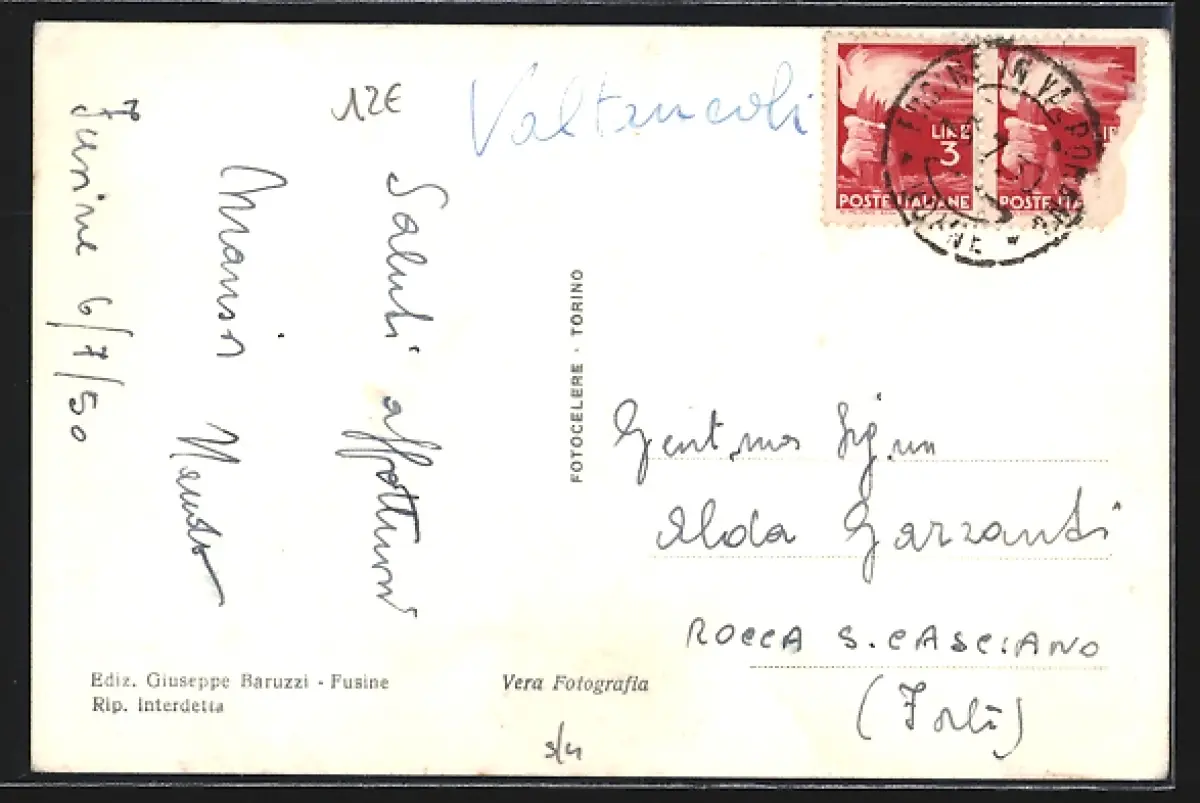 12€
Valtancoli
LIRE
3
POSTE ITALIANE
POSTE
FUSINE IN VAL ROMANA
UDINE
Fusine 6/7/50
Saluti affettuosi
FOTOCELERE - TORINO
Gent.ma Sig.na
Alda Garzanti
ROCCA S. CASCIANO
(Forlì)
Ediz. Giuseppe Baruzzi - Fusine
Rip. Interdetta
Vera Fotografia
s/u